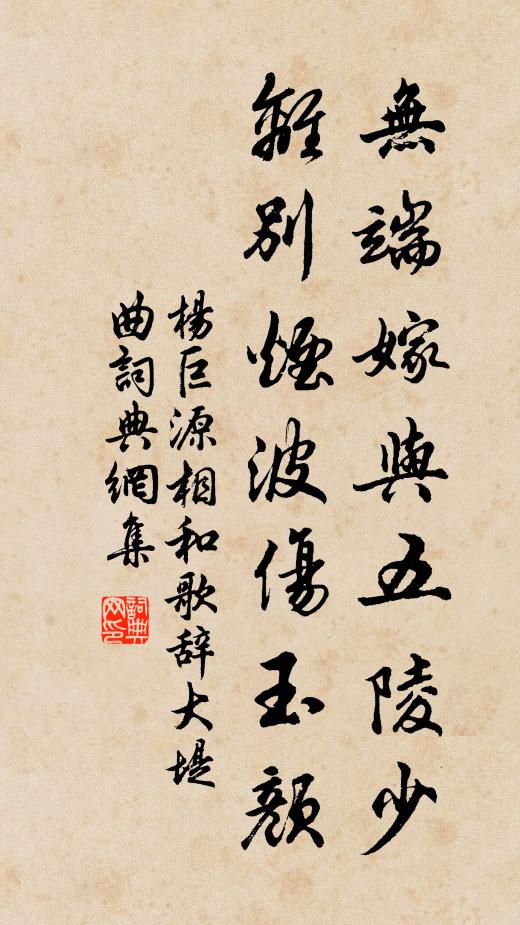 無端嫁與五陵少
離別煙波傷玉顔
楊巨源相和歌辞大堤
曲詞典網集
詞典网印